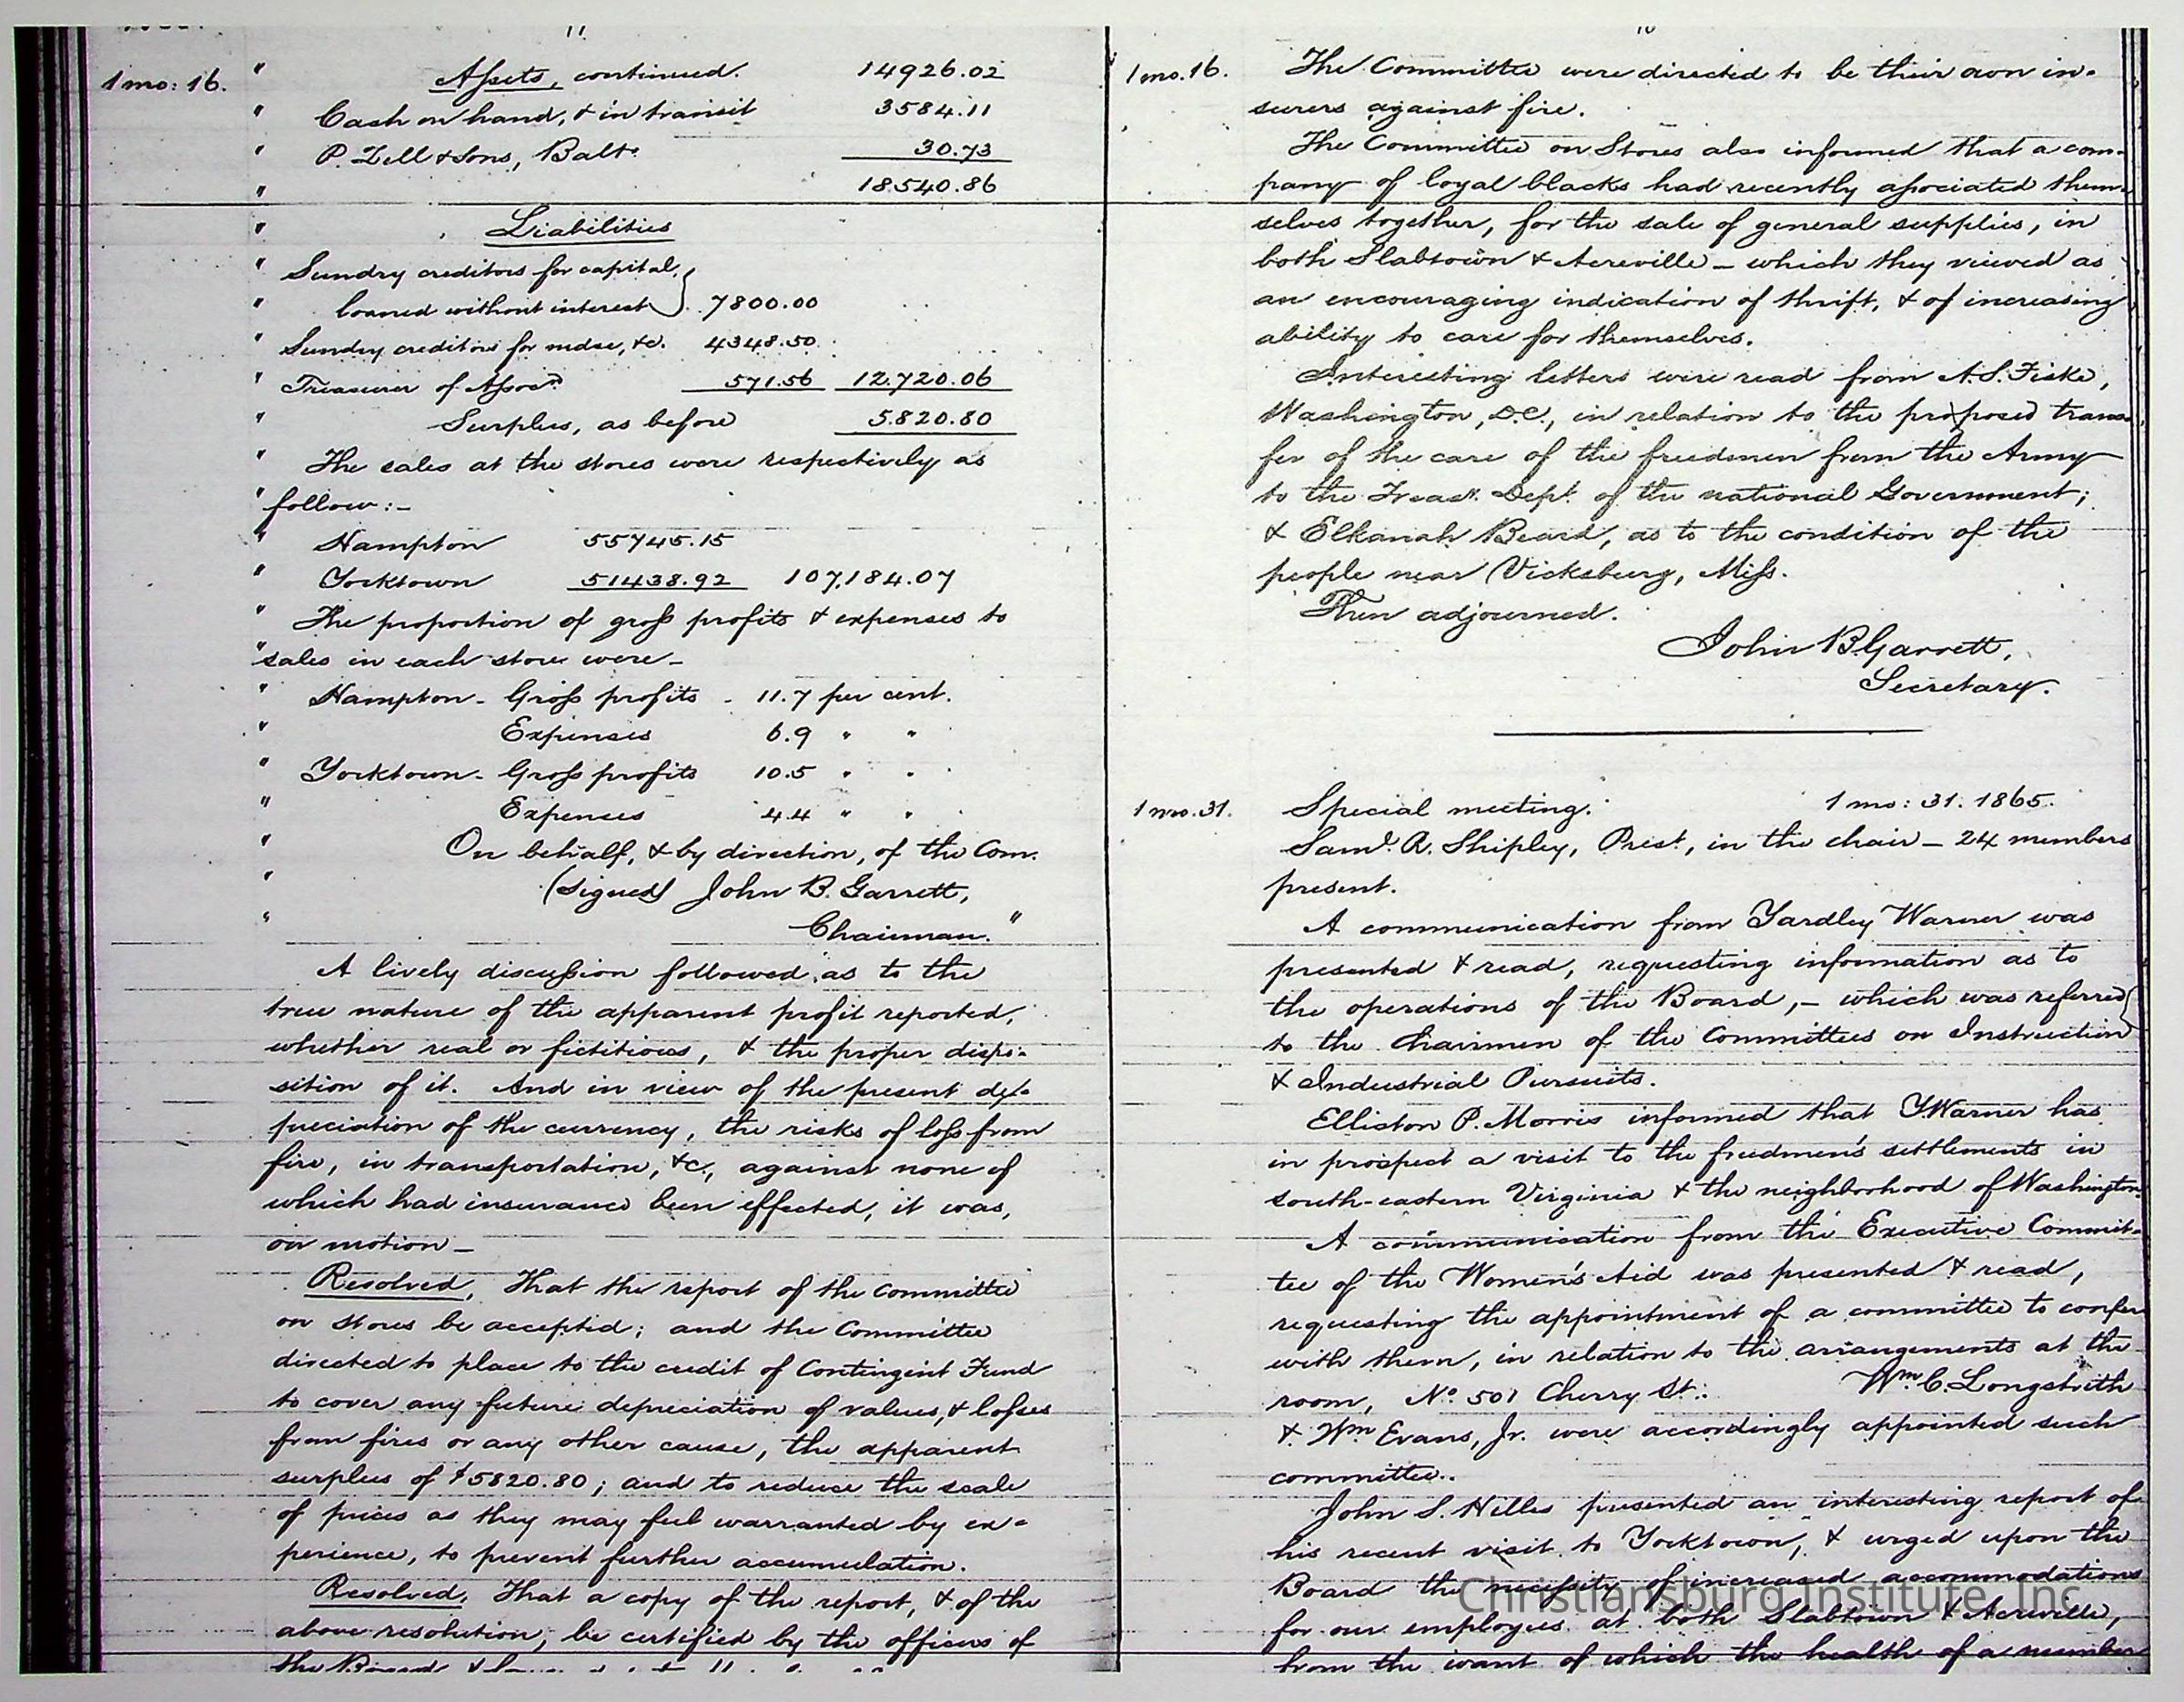 11
1 mo: 16. " Assets, continued. 14926.02
" Cash on hand, & in transit 3584.11
" P. Zell & Sons, Balto. 30.73
" 18540.86
" Liabilities
" Sundry creditors for capital,
" loaned without interest } 7800.00
" Sundry creditors for mdse, &c. 4348.50
" Treasurer of Assocn 571.56 12.720.06
" Surplus, as before 5.820.80
" The sales at the stores were respectively as
" follow:-
" Hampton 55745.15
" Yorktown 51438.92 107,184.07
" The proportion of gross profits & expenses to
" sales in each store were -
" Hampton - Gross profits - 11.7 per cent.
" Expenses 6.9 " "
" Yorktown - Gross profits 10.5 " "
" Expenses 4.4 " "
" On behalf, & by direction, of the Com.
" (Signed) John B. Garrett,
" Chairman. "
A lively discussion followed, as to the
true nature of the apparent profit reported,
whether real or fictitious, & the proper dispo-
sition of it. And in view of the present de-
preciation of the currency, the risks of loss from
fire, in transportation, &c, against none of
which had insurance been effected, it was,
on motion -
Resolved, That the report of the Committee
on Stores be accepted; and the Committee
directed to place to the credit of Contingent Fund
to cover any future depreciation of values, & losses
from fires or any other cause, the apparent
surplus of $5820.80; and to reduce the scale
of prices as they may feel warranted by ex-
perience, to prevent further accumulation.
Resolved, That a copy of the report, & of the
above resolution, be certified by the officers of
the Board
1 mo. 16. The Committee were directed to be their own in-
surers against fire.
The Committee on Stores also informed that a com-
pany of loyal blacks had recently associated them-
selves together, for the sale of general supplies, in
both Slabtown & Acreville - which they viewed as
an encouraging indication of thrift, & of increasing
ability to care for themselves.
Interesting letters were read from A.S. Fiske,
Washington, D.C., in relation to the proposed trans-
fer of the care of the freedmen from the Army
to the Treasy. Dept. of the national Government;
& Elkanah Beard, as to the condition of the
people near Vicksburg, Miss.
Then adjourned.
John B. Garrett,
Secretary.
1 mo. 31. Special meeting. 1 mo: 31. 1865.
Saml. R. Shipley, Prest., in the chair - 24 members
present.
A communication from Yardley Warner was
presented & read, requesting information as to
the operations of the Board, - which was referred
to the Chairmen of the Committees on Instruction
& Industrial Pursuits.
Elliston P. Morris informed that Y. Warner has
in prospect a visit to the freedmen's settlements in
south-eastern Virginia & the neighborhood of Washington
A communication from the Executive Commit-
tee of the Women's Aid was presented & read,
requesting the appointment of a committee to confer
with them, in relation to the arrangements at the
room, No. 501 Cherry St.. Wm. C. Longstreth
& Wm Evans, Jr. were accordingly appointed such
committee..
John S. Hilles presented an interesting report of
his recent visit to Yorktown, & urged upon the
Board the necessity of increased accommodations
for our employees at both Slabtown & Acreville,
from the want of which the health of a number
Christiansburg Institute, Inc